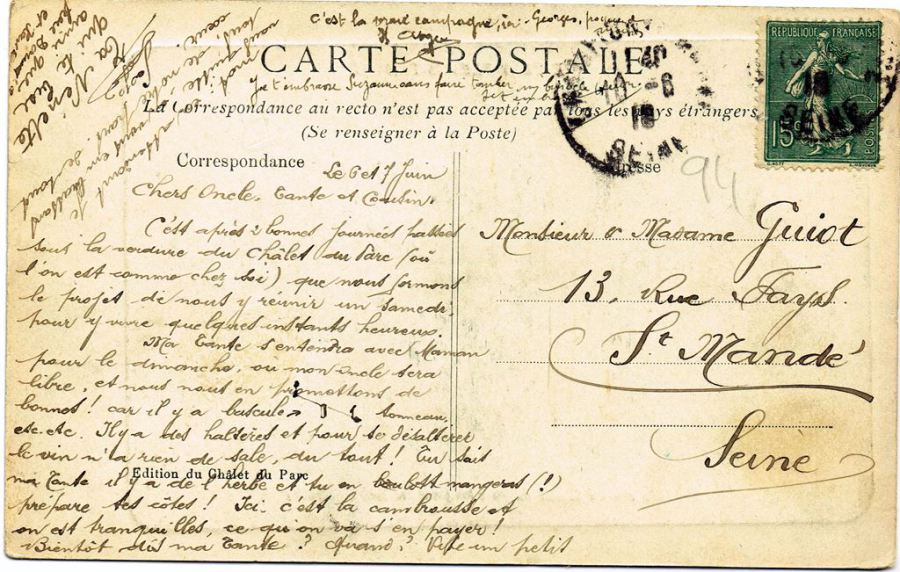 C'est la vraie campagne, ici. Georges,
CARTE POSTALE
Je t'embrasse Suzanne sans faire tomber
La Correspondance au recto n'est pas acceptée par tous les pays étrangers
(Se renseigner à la Poste)
Correspondance
Le 6 et 7 Juin
Chers Oncle, Tante et Cousin,
C'est après 2 bonnes journées passées
sous la verdure du Châlet du Parc (où
l'on est comme chez soi) que nous formons
le projet de nous y réunir un samedi,
pour y vivre quelques instants heureux.
Ma Tante s'entendra avec Maman
pour le dimanche, où mon oncle sera
libre, et nous nous en promettons de
bonnes! car il y a bascule, tonneau,
etc.etc. Il y a des haltères et pour se désaltérer
le vin n'a rien de sale, du tout! Tu sais
ma Tante il y a de l'herbe et tu en mangeras (!)
prépare tes côtes! Ici, c'est la cambrousse et
on est tranquilles, ce qu'on va s'en payer!
Bientôt dis ma Tante? Quand? Vite un petit
Edition du Châlet du Parc
Ta Ninette
Adresse
94
Monsieur & Madame Guiot
13, Rue Fays.
St Mandé
Seine
REPUBLIQUE FRANÇAISE
15c
SEINE
SEINE